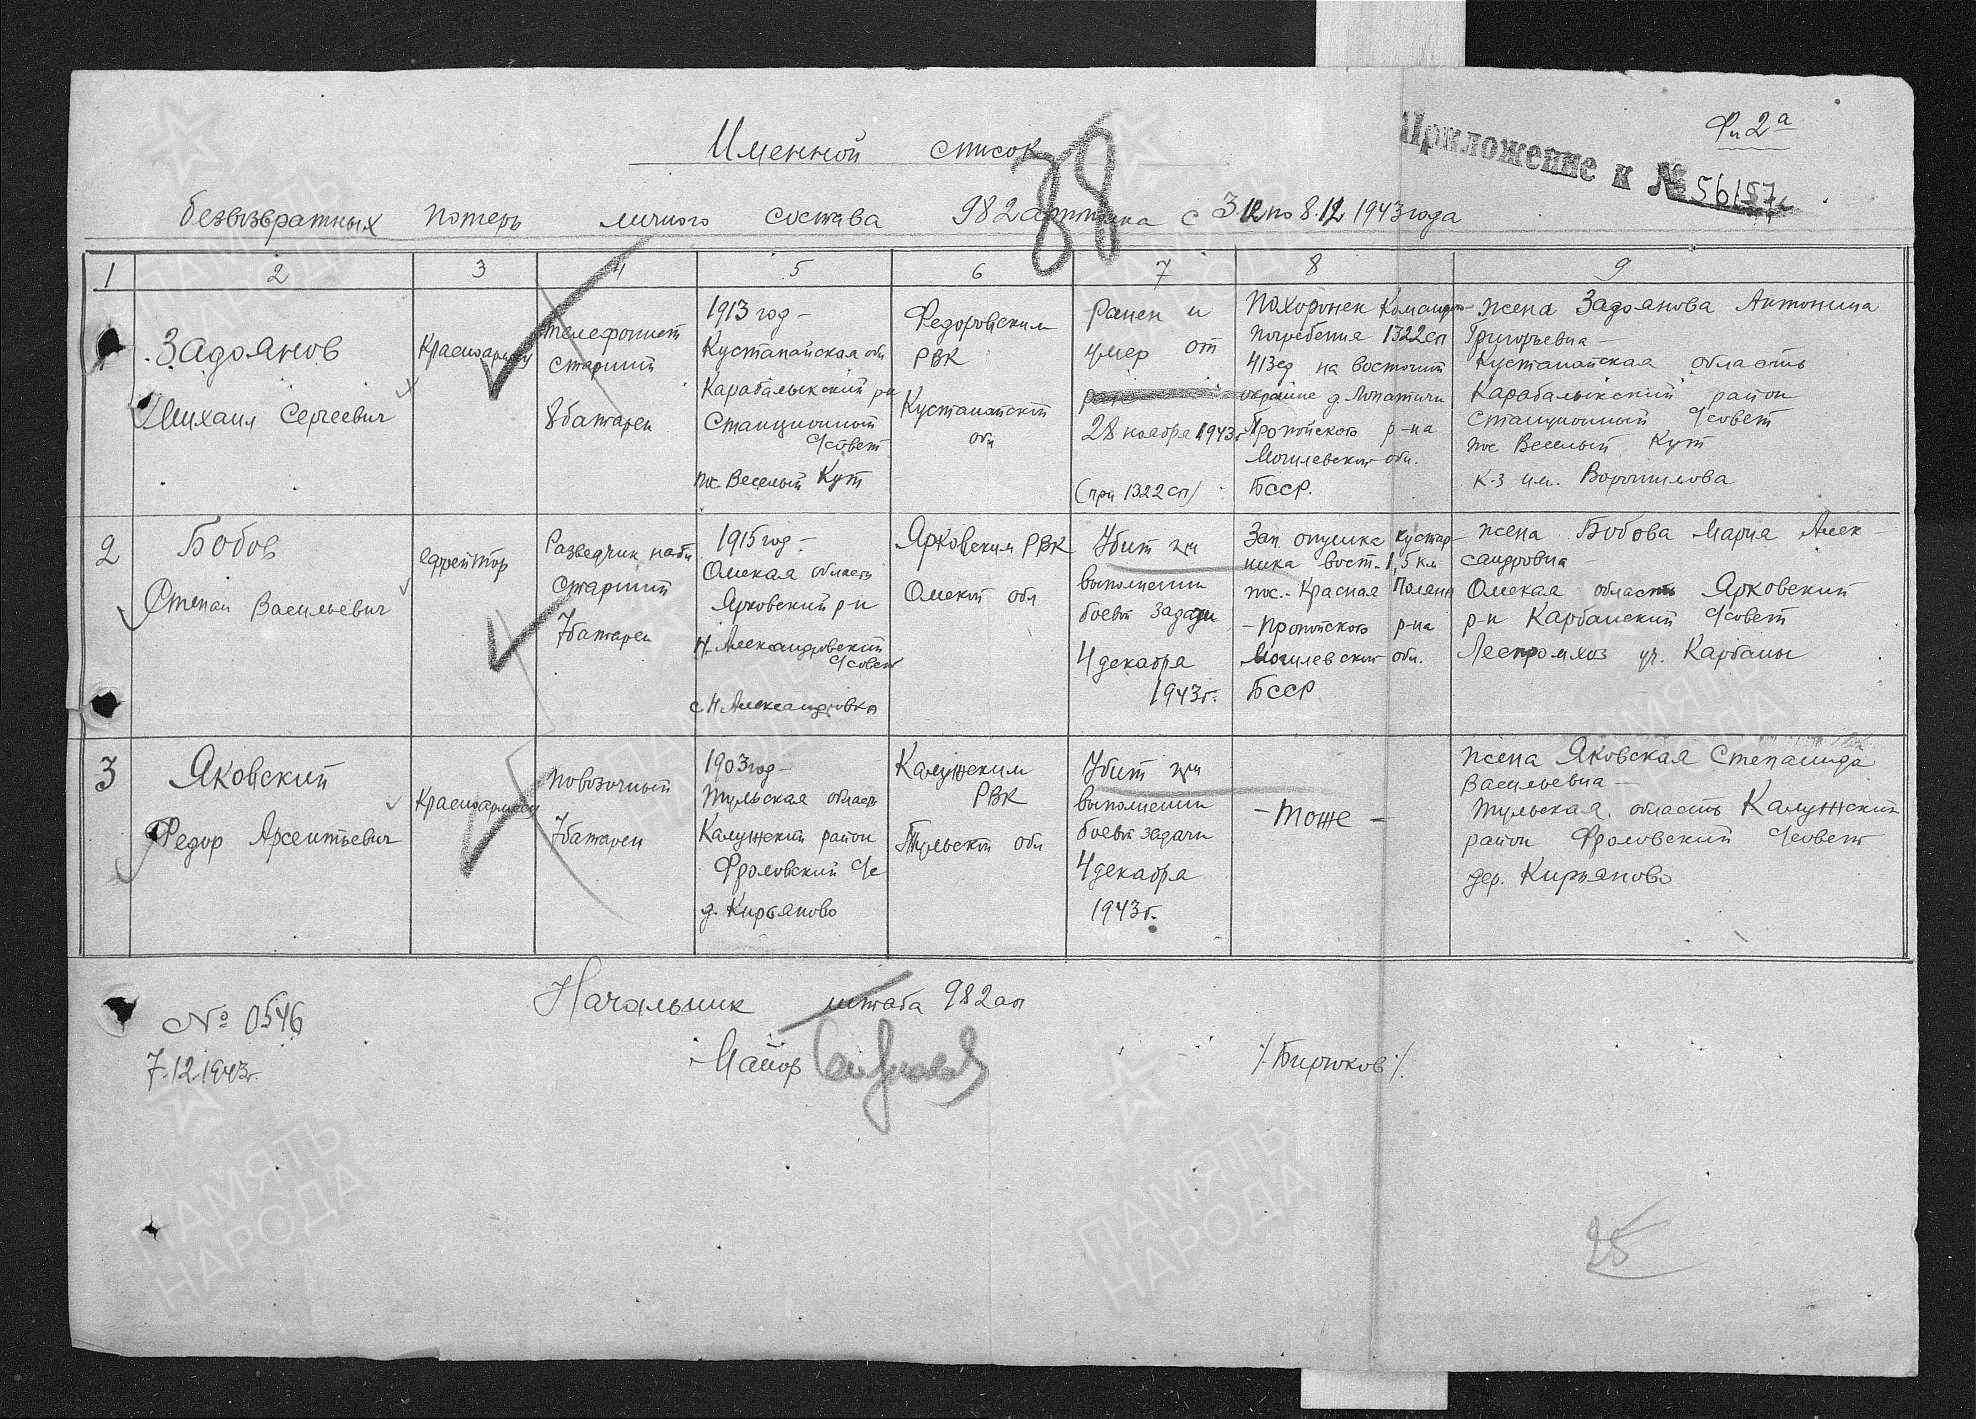 Ф.№2а
Приложение к № 56157с
Именной список
38
безвозвратных потерь личного состава 982 артполка с 3.12 по 8.12.1943 года
1 2 3 4 5 6 7 8 9
1
Задоянов
Михаил Сергеевич
Красноармеец
телефонист
старший
8 батареи
1913 год -
Кустанайская обл
Карабалыкский р-н
Станционный
с/совет
пос. Веселый Кут
Федоровским
РВК
Кустанайской
обл
Ранен и
умер от
28 ноября 1943г.
(при 1322 сп)
Похоронен Командой
погребения 1322 сп
413 сд на восточной
окраине д. Лопатичи
Пропойского р-на
Могилевской обл.
БССР.
Жена Задоянова Антонина
Григорьевна -
Кустанайская область
Карабалыкский район
Станционный с/совет
пос Веселый Кут
к-з им. Ворошилова
2
Бобов
Степан Васильевич
ефрейтор
Разведчик наблю
старший
7 батареи
1915 год -
Омская область
Ярковский р-н
Н. Александровский
с/совет
с. Н Александровка
Ярковским РВК
Омской обл
Убит при
выполнении
боевой задачи
4 декабря
1943г.
Зап. опушка кустар-
ника вост. 1,5 км
пос. Красная Поляна
- Пропойского р-на
Могилевской обл.
БССР
Жена Бобова Мария Алек-
сандровна -
Омская область Ярковский
р-н Карбанский с/совет
Леспромхоз уч. Карбаны
3
Яковский
Федор Арсентьевич
Красноармеец
повозочный
7 батареи
1903 год -
Тульская область
Калужский район
Фроловский с/с
д. Кирьяново
Калужским
РВК
Тульской обл
Убит при
выполнении
боевой задачи
4 декабря
1943г.
- тоже -
Жена Яковская Степанида
Васильевна -
Тульская область Калужский
район Фроловский с/совет
дер. Кирьяново
Начальник штаба 982 ап
Майор /Бирюков/
№ 0546
7.12.1943г.
25
ПАМЯТЬ
НАРОДА